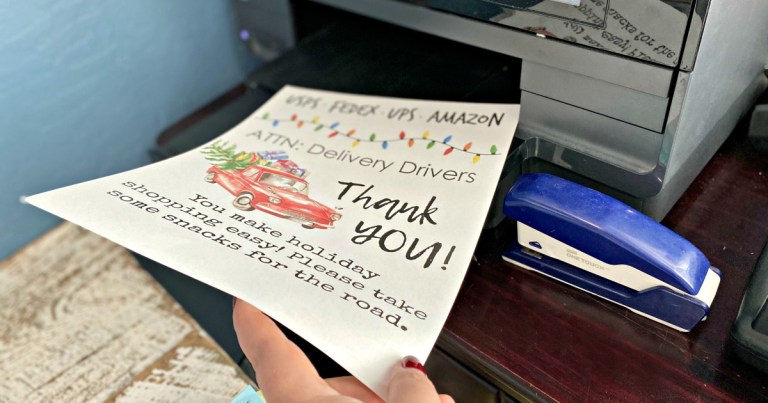 USPS · FEDEX · UPS · AMAZON
ATTN: Delivery Drivers
Thank
you!
You make holiday
shopping easy! Please take
some snacks for the road.